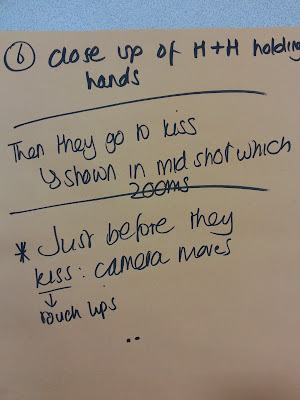 ⑥ close up of H+H holding
hands
Then they go to kiss
↳ shown in mid shot which
zooms
* Just before they
kiss: camera moves
↓
touch lips
..